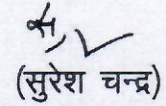 (सुरेश चन्द्र)